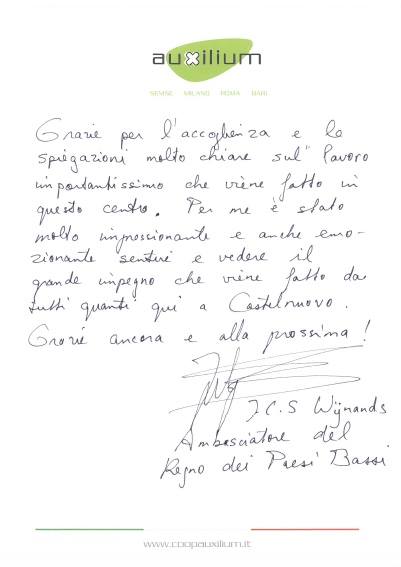 auxilium
SENISE MILANO ROMA BARI
Grazie per l'accoglienza e le
spiegazioni molto chiare sul lavoro
importantissimo che viene fatto in
questo centro. Per me è stato
molto impressionante e anche emo-
zionante sentire e vedere il
grande impegno che viene fatto da
tutti quanti qui a Castelnuovo.
Grazie ancora e alla prossima!
J.C.S Wijnands
Ambasciatore del
Regno dei Paesi Bassi
www.coopauxilium.it